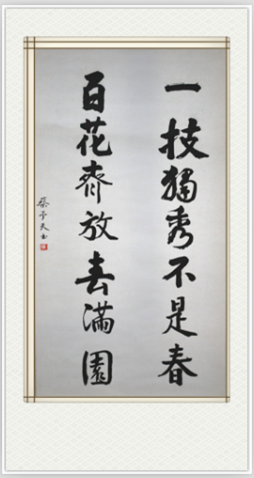 一技獨秀不是春
百花齊放春滿園